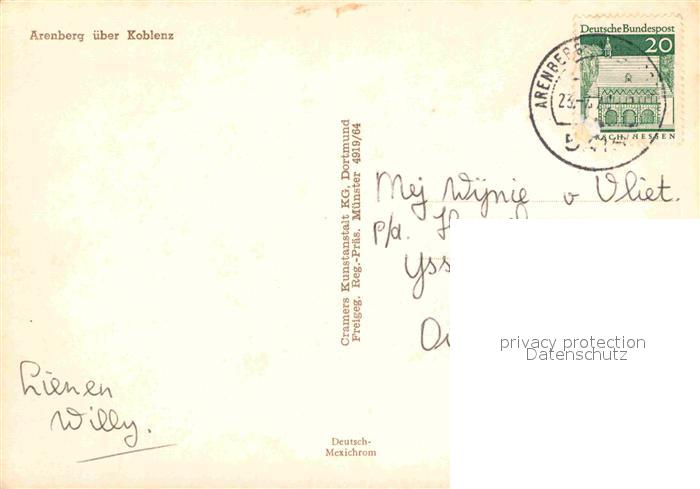 Arenberg über Koblenz
Deutsche Bundespost
20
ARENBERG
23.
LORSCH/HESSEN
Cramers Kunstanstalt KG, Dortmund
Freigeg. Reg.-Präs. Münster 4919/64
Mej Wijnie v Vliet.
p/d.
privacy protection
Datenschutz
Lienen
Willy.
Deutsch-
Mexichrom